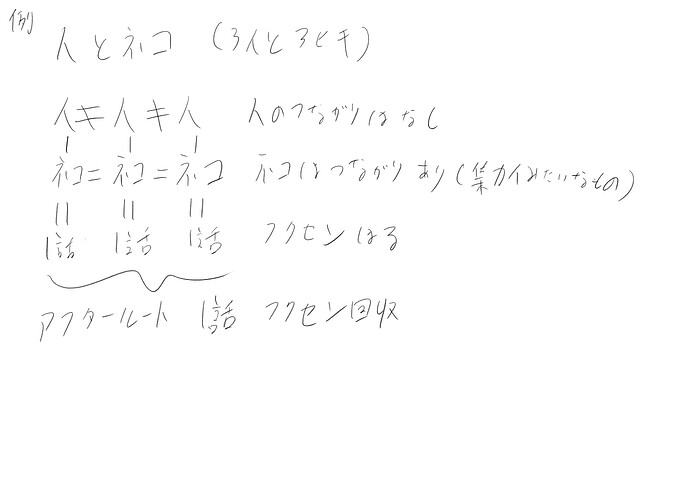 例
人とネコ (3人と3ヒキ)
人≠人≠人 人のつながりはなし
ネコ=ネコ=ネコ ネコはつながりあり(集カイみたいなもの)
1話 1話 1話 フクセンはる
アフタールート 1話 フクセン回収